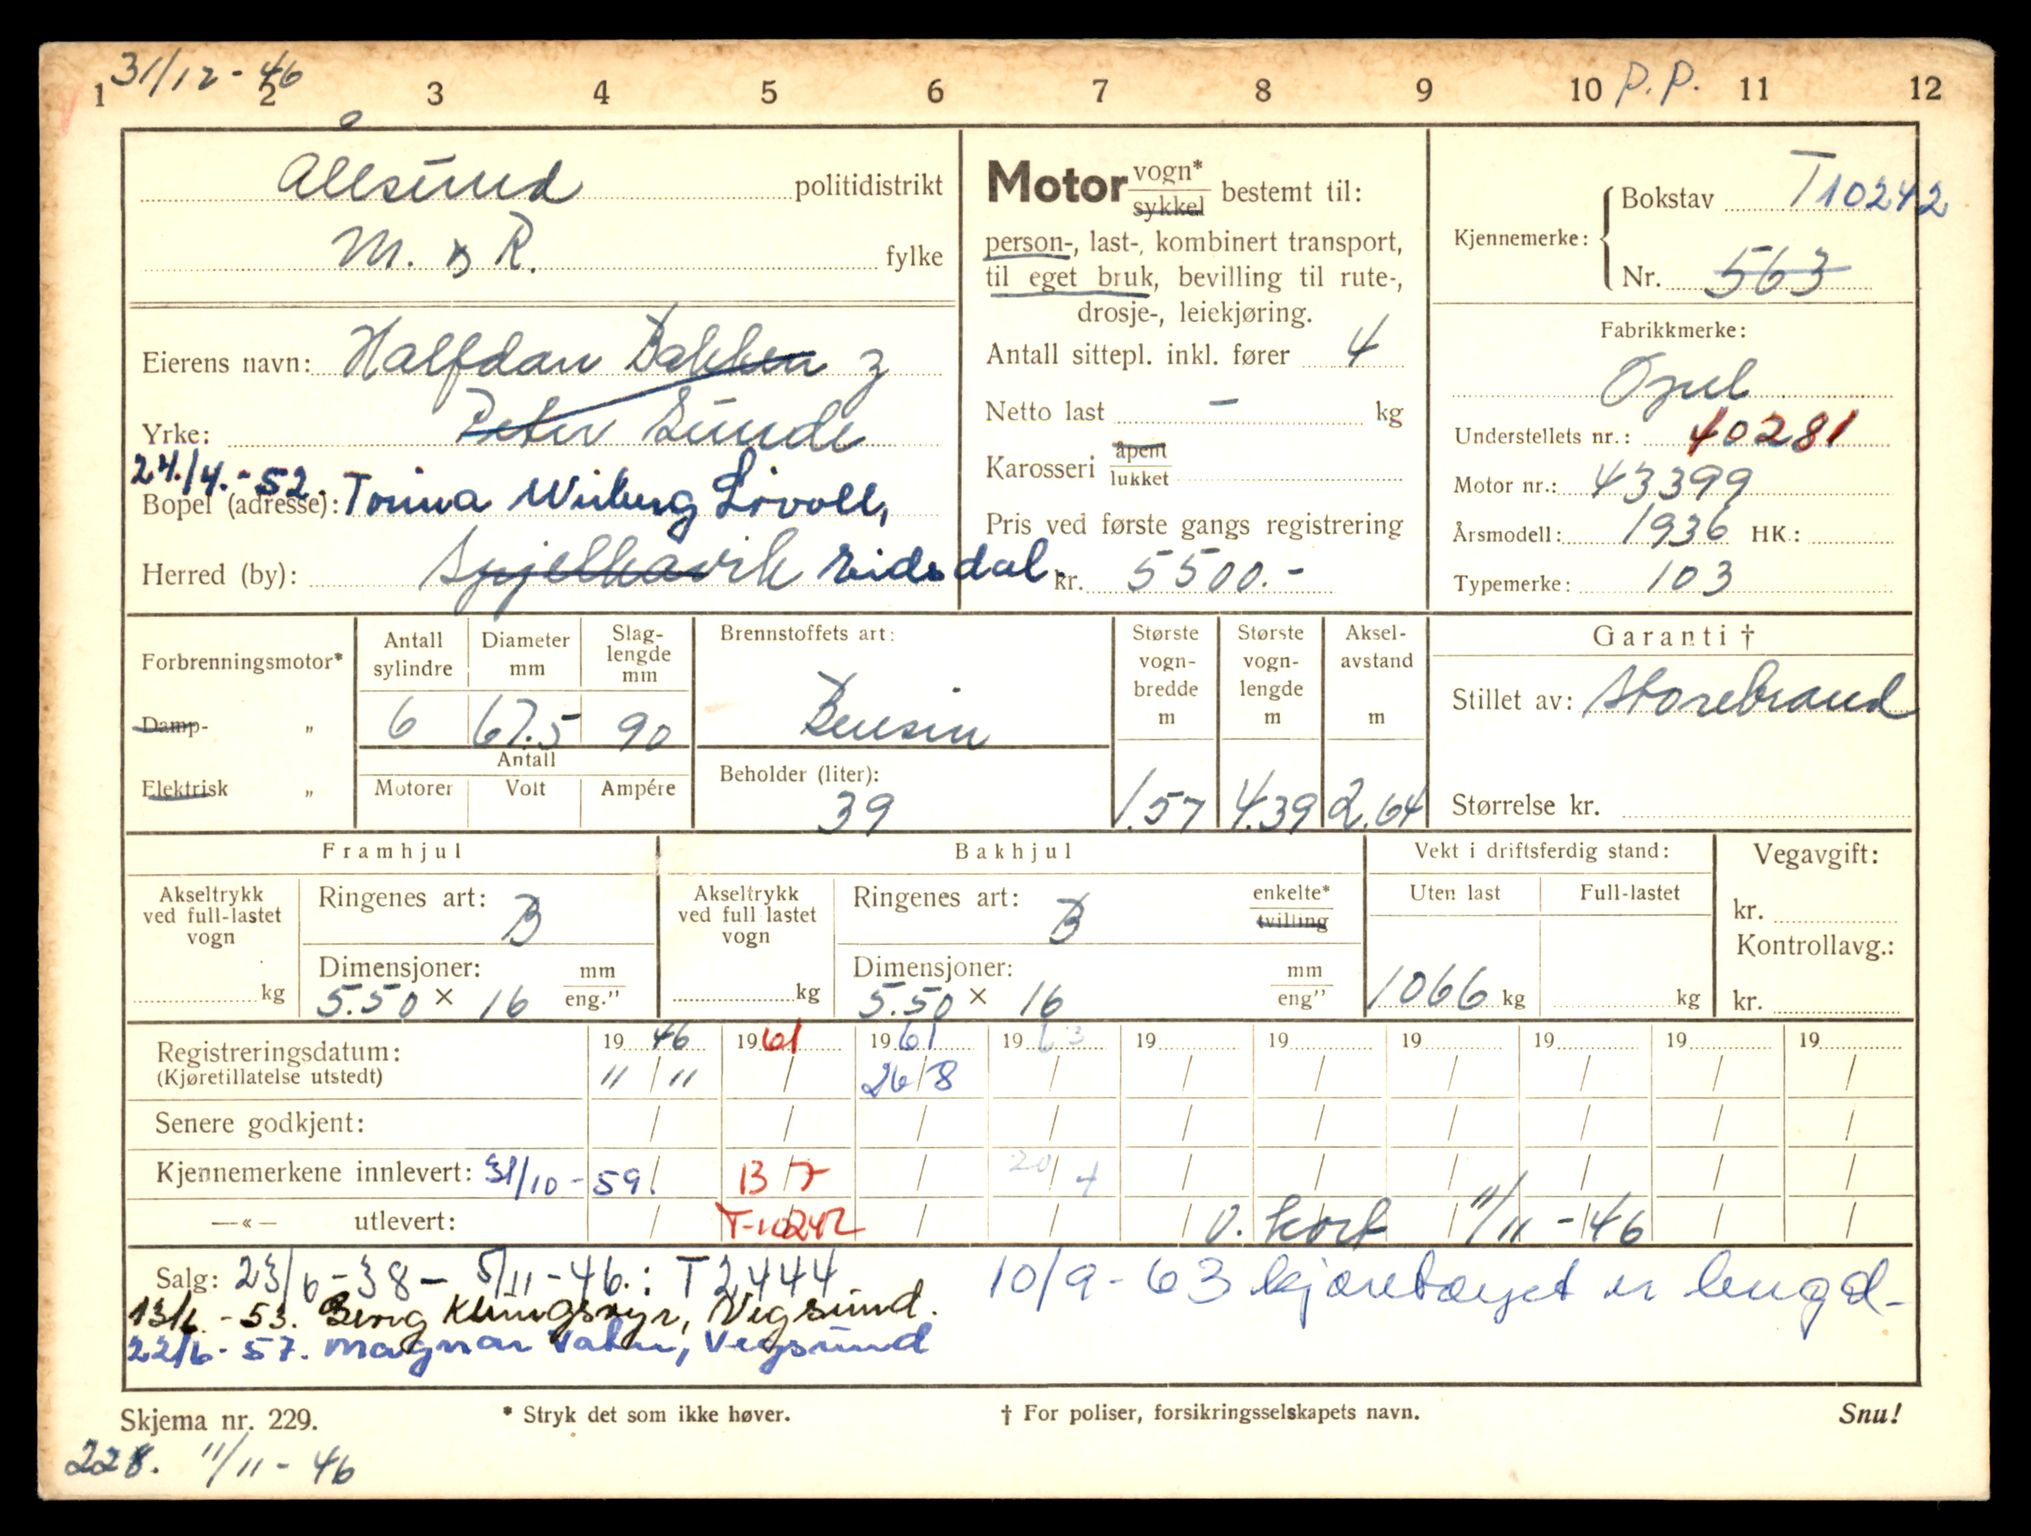 31/12-46
1 2 3 4 5 6 7 8 9 10 P.P. 11 12
Ålesund politidistrikt
M. & R. fylke
Eierens navn: Halfdan Bakken &
Yrke: Peter Sunde
24./4.-52.
Bopel (adresse): Torina Wiberg Løvoll,
Herred (by): Spjelkavik Eidsdal.
Motor vogn* sykkel bestemt til:
person-, last-, kombinert transport,
til eget bruk, bevilling til rute-,
drosje-, leiekjøring.
Antall sittepl. inkl. fører 4
Netto last - kg
Karosseri åpent lukket
Pris ved første gangs registrering
kr. 5500.-
Kjennemerke: Bokstav T10242
Nr. 563
Fabrikkmerke:
Opel
Understellets nr.: 40281
Motor nr.: 43399
Årsmodell: 1936 HK.:
Typemerke: 103
Forbrenningsmotor*
Damp- „
Elektrisk „
Antall sylindre 6
Diameter mm 67.5
Slag-lengde mm 90
Antall
Motorer Volt Ampére
Brennstoffets art:
Bensin
Beholder (liter):
39
Største vogn-bredde m 1.57
Største vogn-lengde m 4.39
Aksel-avstand m 2.64
Garanti †
Stillet av: Storebrand
Størrelse kr.
Framhjul
Akseltrykk ved full-lastet vogn
kg
Ringenes art: B
Dimensjoner: mm
5.50 × 16 eng.”
Bakhjul
Akseltrykk ved full lastet vogn
kg
Ringenes art: B enkelte* tvilling
Dimensjoner: mm
5.50 × 16 eng”
Vekt i driftsferdig stand:
Uten last Full-lastet
1066 kg kg
Vegavgift:
kr.
Kontrollavg.:
kr.
Registreringsdatum: 1946 1961 1961 1963 19 19 19 19 19 19
(Kjøretillatelse utstedt) 11/11 / 26/8 / / / / / / /
Senere godkjent: / / / / / / / / / /
Kjennemerkene innlevert: 31/10-59. 13/7 / 20/4 / / / / / /
—«— utlevert: / T-10242 / / v. kort 11/11-46 / /
Salg: 23/6-38 - 5/11-46.: T2444 10/9-63 kjøretøyet er hugd-
13/6.-53. Berg Klungsøyr, Vegsund.
22/6-57. Magnar Vatne, Vegsund
Skjema nr. 229. * Stryk det som ikke høver. † For poliser, forsikringsselskapets navn. Snu!
228. 11/11-46